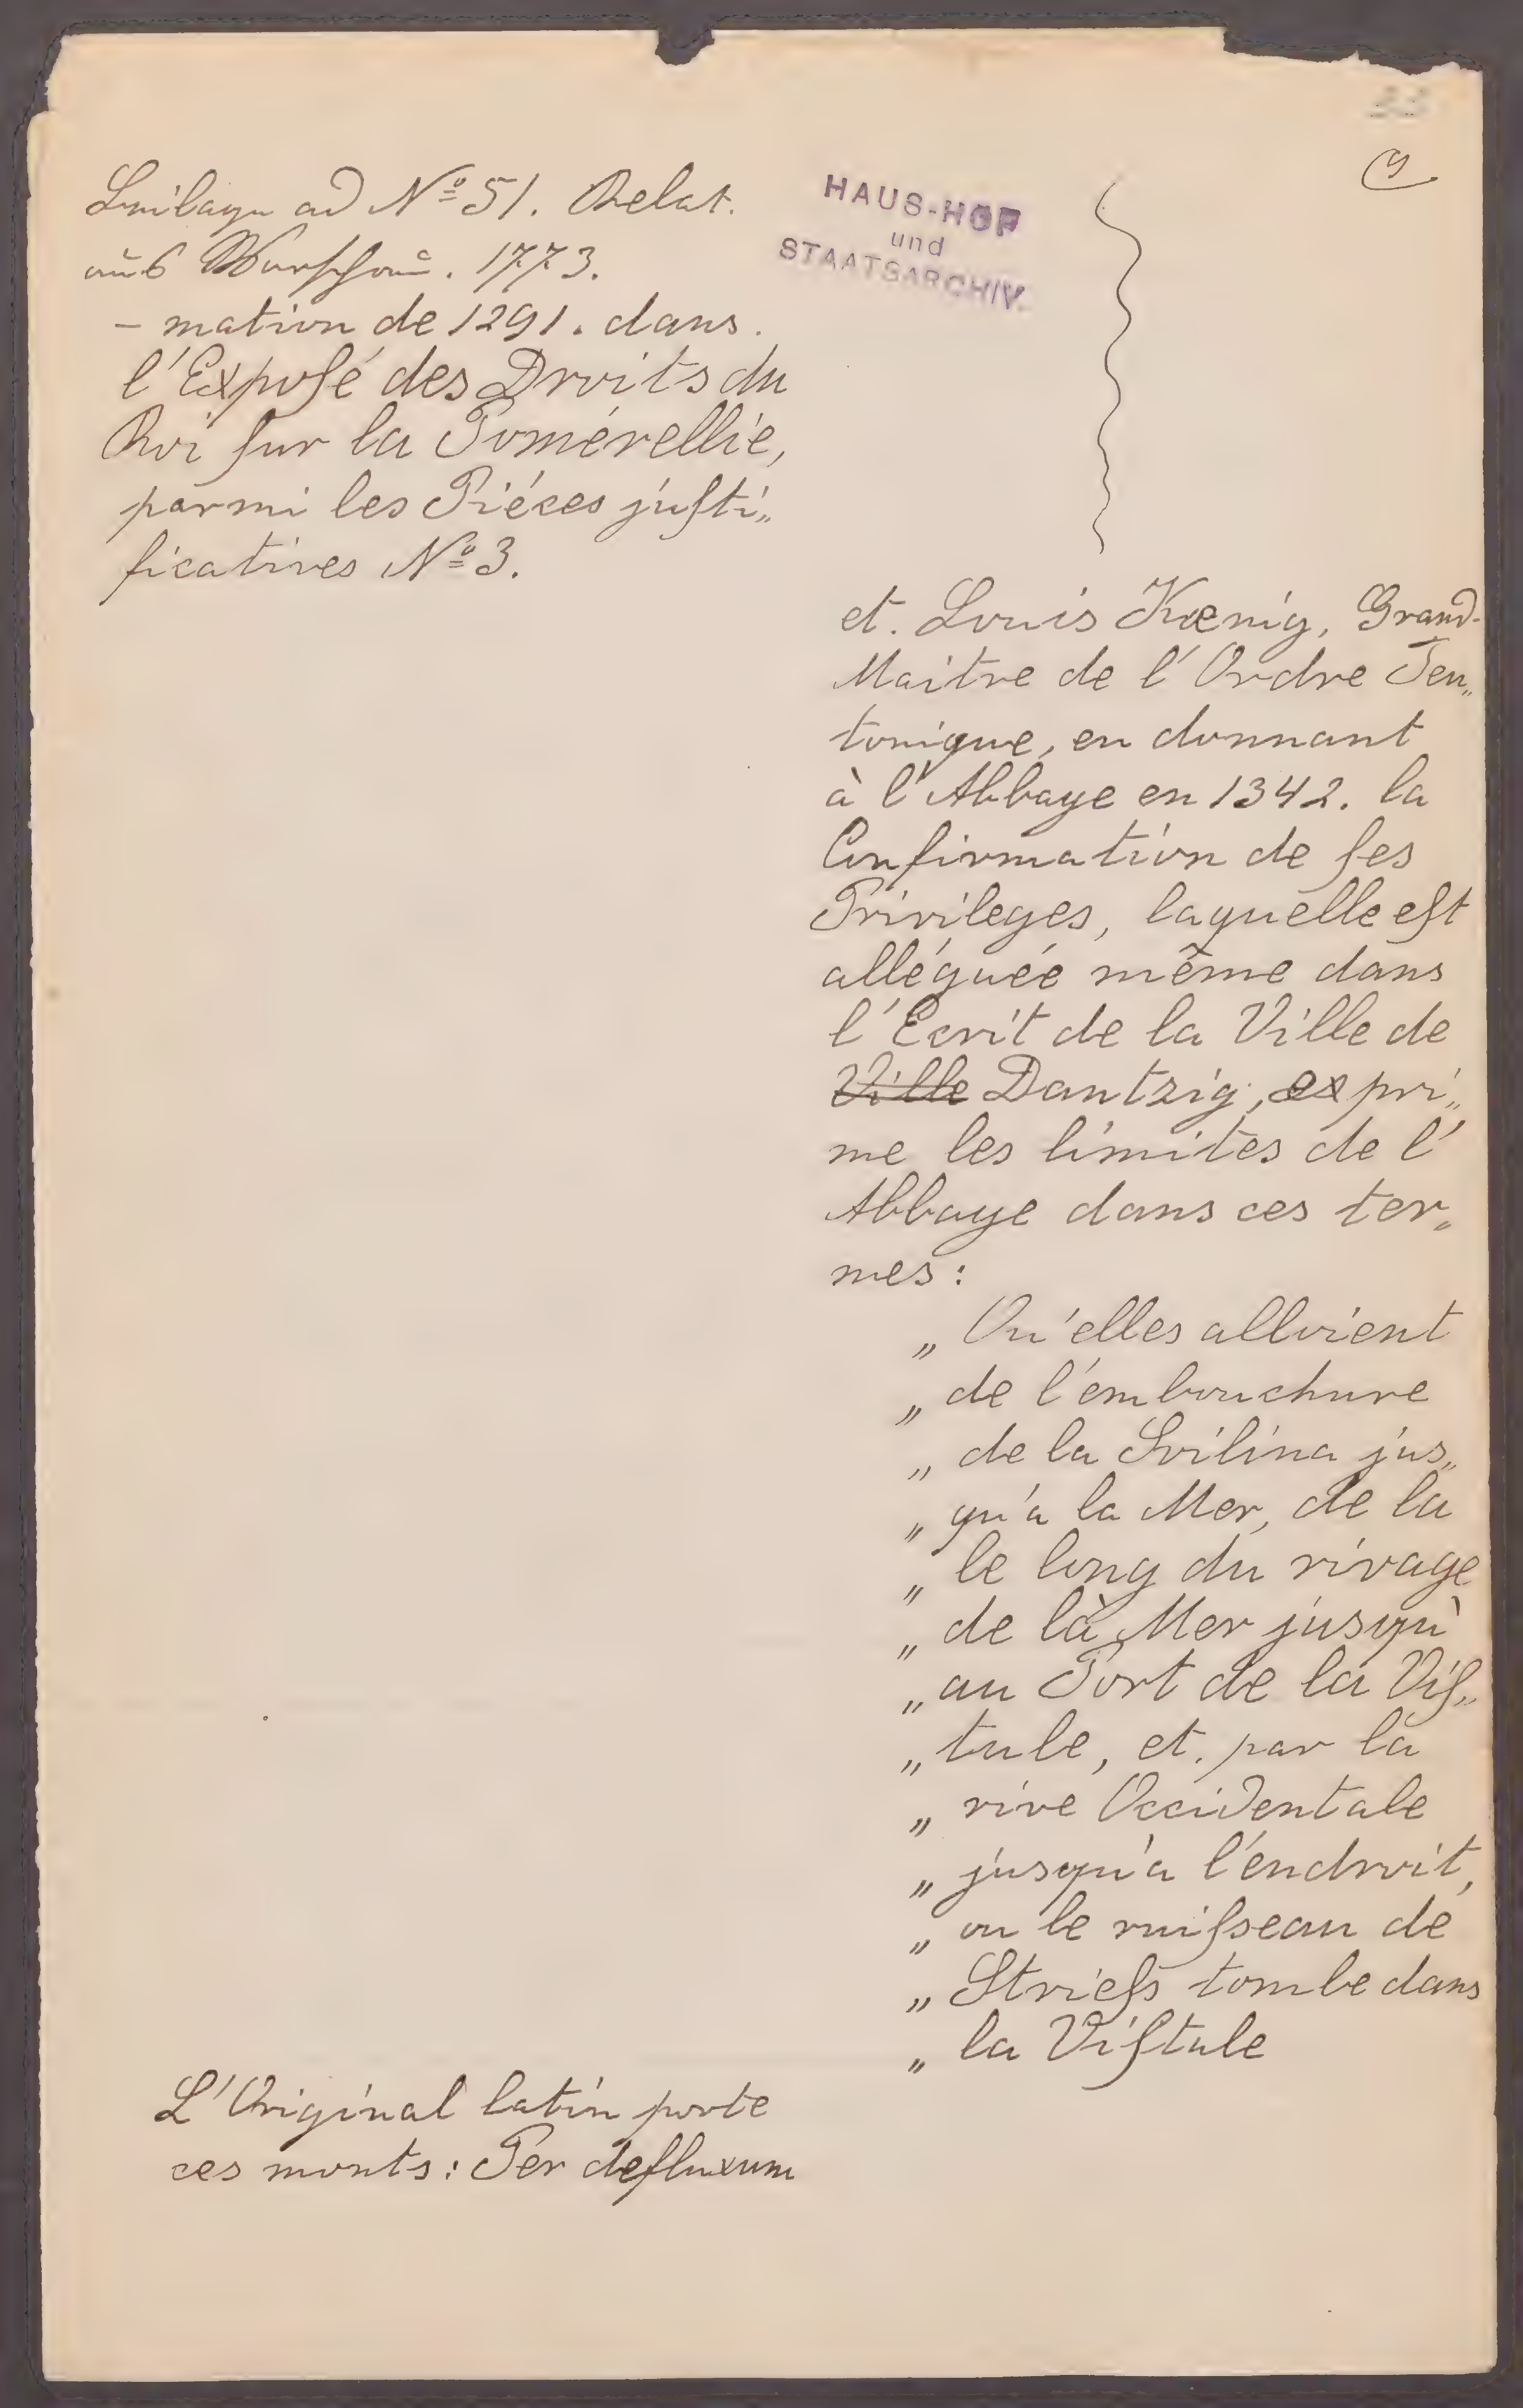 9
HAUS-HOF
und
STAATSARCHIV.
Beilage ad Nº 51. Relat.
aus Warschau. 1773.
- mation de 1291. dans
l'Exposé des Droits du
Roi sur la Pomérellie,
parmi les Piéces justi„
ficatives Nº 3.
et. Louis Kœnig, Grand-
Maitre de l'Ordre Teu„
tonique, en donnant
à l'Abbaye en 1342. la
Confirmation de ses
Privileges, laquelle est
alléguée même dans
l'Ecrit de la Ville de
Ville Dantzig, expri„
me les limites de l'
Abbaye dans ces ter„
mes:
„ Qu'elles alloient
„ de l'embouchure
„ de la Svilina jus„
„ qu'a la Mer, de la
„ le long du rivage
„ de là Mer jusqu'
„ au Port de la Vis„
„ tule, et. par la
„ rive Occidentale
„ jusqu'a l'endroit,
„ ou le ruisseau de
„ Striess tombe dans
„ la Vistule
L'Original latin porte
ces monts: Per defluxum